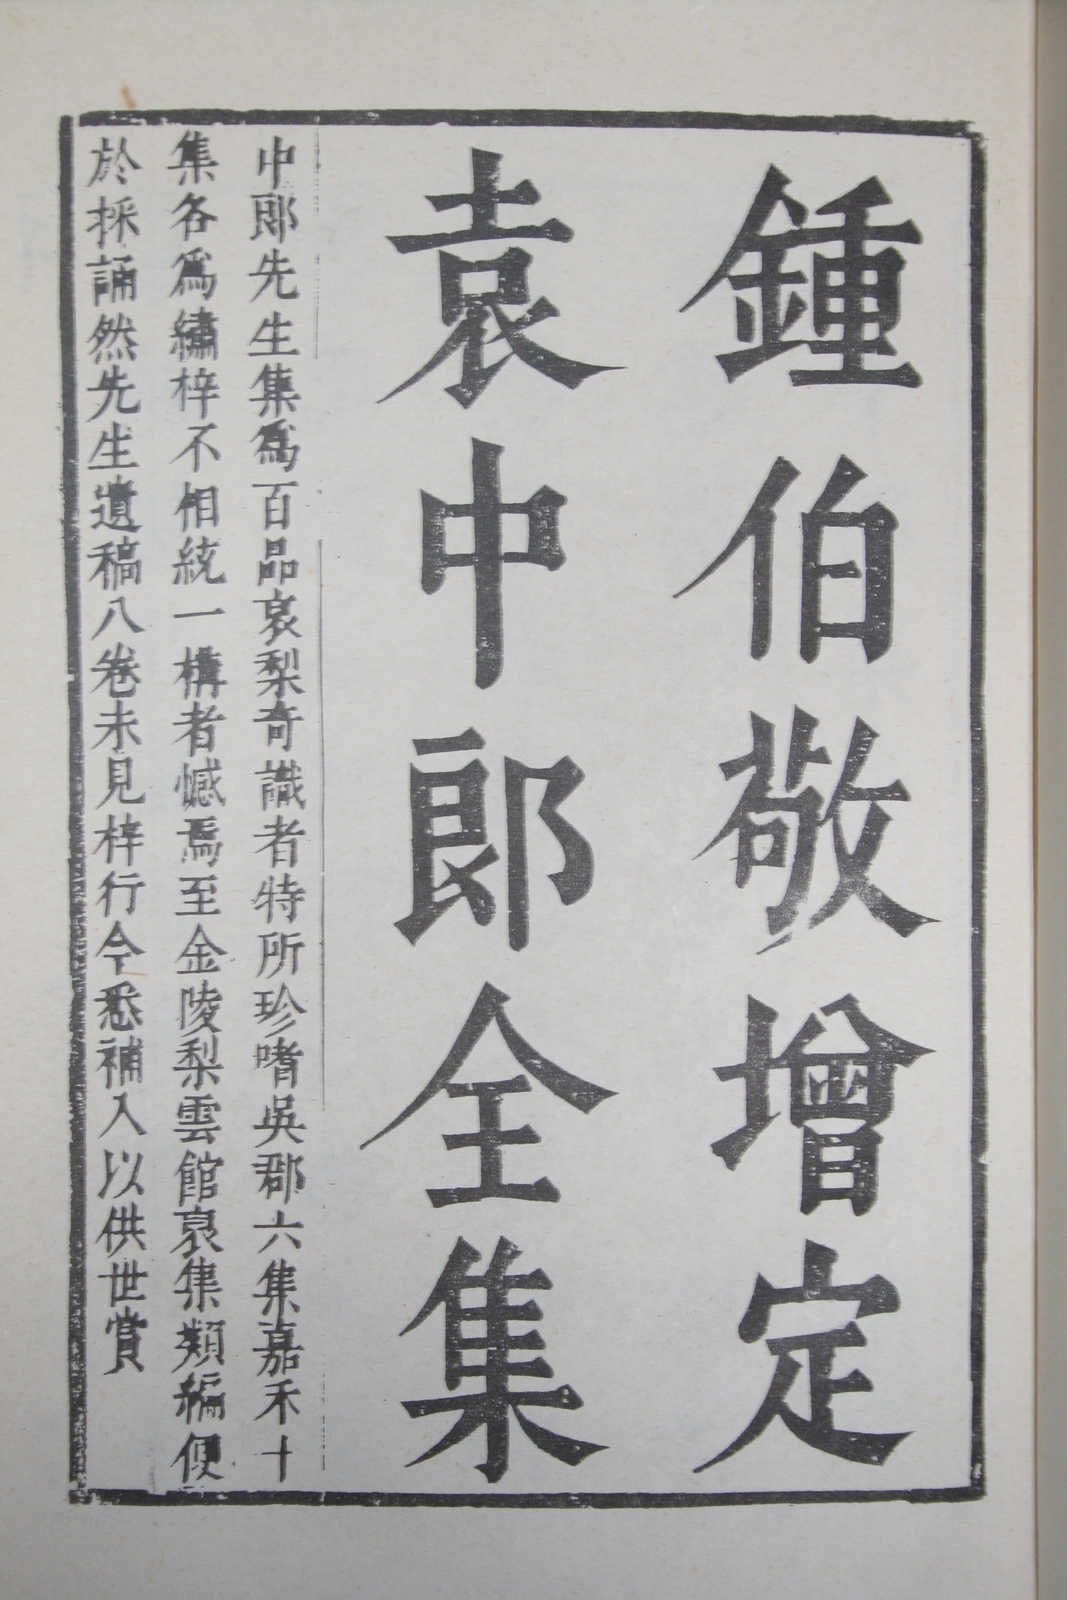 鍾伯敬增定
袁中郎全集
中郎先生集爲百品哀梨奇識者特所珍嗜吳郡六集嘉禾十
集各爲繡梓不相統一購者憾焉至金陵梨雲館裒集類編便
於採誦然先生遺稿八卷未見梓行今悉補入以供世賞